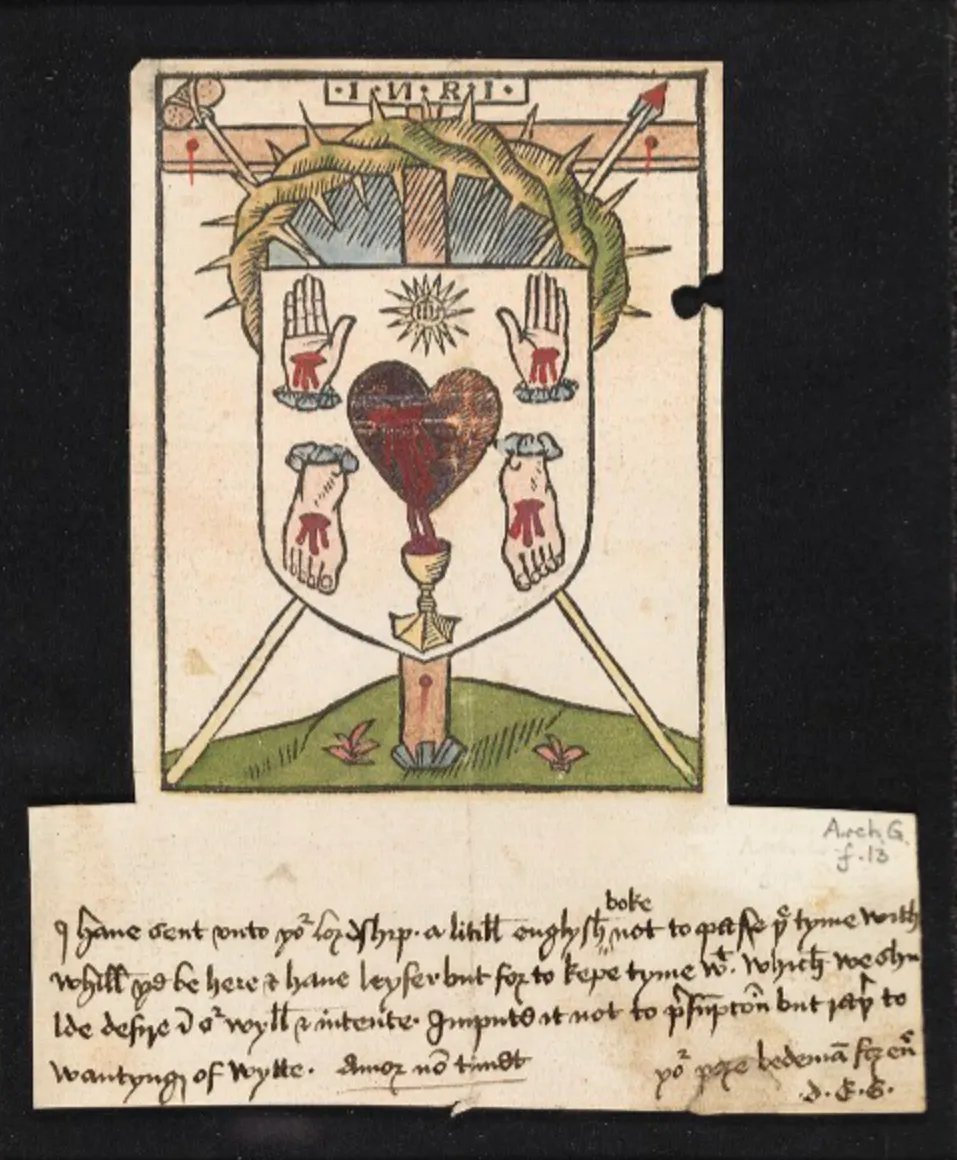 ·I·N·R·I·
IHS
Arch. G.
f. 13
boke
I haue sent vnto yor lordship · a litill englysh not to passe yͤ tyme with
whill be here & haue leyser but for to kepe tyme wt. which we shu
lde desyre or wyll & intente. Imputo it not to but to
wantyng of wytte. Amor nō timet
yor pore bedemā for eū
·d·E·S·